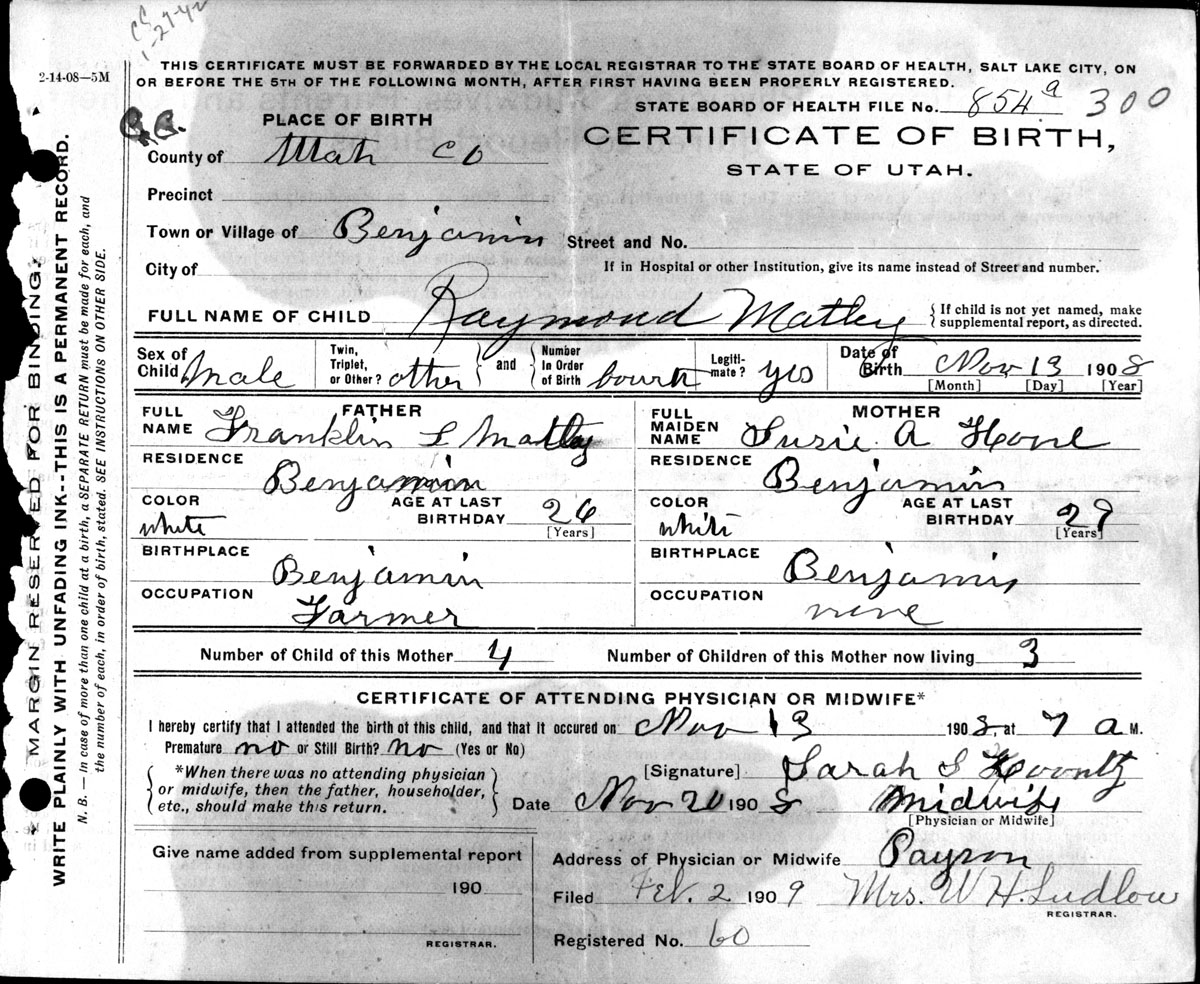 1-29-42
2-14-08—5M
THIS CERTIFICATE MUST BE FORWARDED BY THE LOCAL REGISTRAR TO THE STATE BOARD OF HEALTH, SALT LAKE CITY, ON
OR BEFORE THE 5TH OF THE FOLLOWING MONTH, AFTER FIRST HAVING BEEN PROPERLY REGISTERED.
STATE BOARD OF HEALTH FILE No. 854 a 300
PLACE OF BIRTH
CERTIFICATE OF BIRTH,
STATE OF UTAH.
County of Utah Co
Precinct
Town or Village of Benjamin Street and No.
City of If in Hospital or other Institution, give its name instead of Street and number.
FULL NAME OF CHILD Raymond Matley { If child is not yet named, make supplemental report, as directed.
Sex of Child Male Twin, Triplet, or Other? other } and { Number in Order of Birth fourth Legiti- mate? yes Date of Birth Nov 13 1908
[Month] [Day] [Year]
FATHER
FULL NAME Franklin S Matley
RESIDENCE Benjamin
COLOR white AGE AT LAST BIRTHDAY 26
[Years]
BIRTHPLACE Benjamin
OCCUPATION Farmer
MOTHER
FULL MAIDEN NAME Susie A Hone
RESIDENCE Benjamin
COLOR white AGE AT LAST BIRTHDAY 27
[Years]
BIRTHPLACE Benjamin
OCCUPATION none
Number of Child of this Mother 4 Number of Children of this Mother now living 3
CERTIFICATE OF ATTENDING PHYSICIAN OR MIDWIFE*
I hereby certify that I attended the birth of this child, and that it occured on Nov 13 1908, at 7 a M.
Premature no or Still Birth? no (Yes or No)
{ *When there was no attending physician
or midwife, then the father, householder,
etc., should make this return. }
[Signature] Sarah S Koontz
Date Nov 20 1908 Midwife
[Physician or Midwife]
Give name added from supplemental report
190
REGISTRAR.
Address of Physician or Midwife Payson
Filed Feb. 2 1909 Mrs. W H. Ludlow
REGISTRAR.
Registered No. 60
MARGIN RESERVED FOR BINDING.
WRITE PLAINLY WITH UNFADING INK--THIS IS A PERMANENT RECORD.
N. B. — In case of more than one child at a birth, a SEPARATE RETURN must be made for each, and
the number of each, in order of birth, stated. SEE INSTRUCTIONS ON OTHER SIDE.